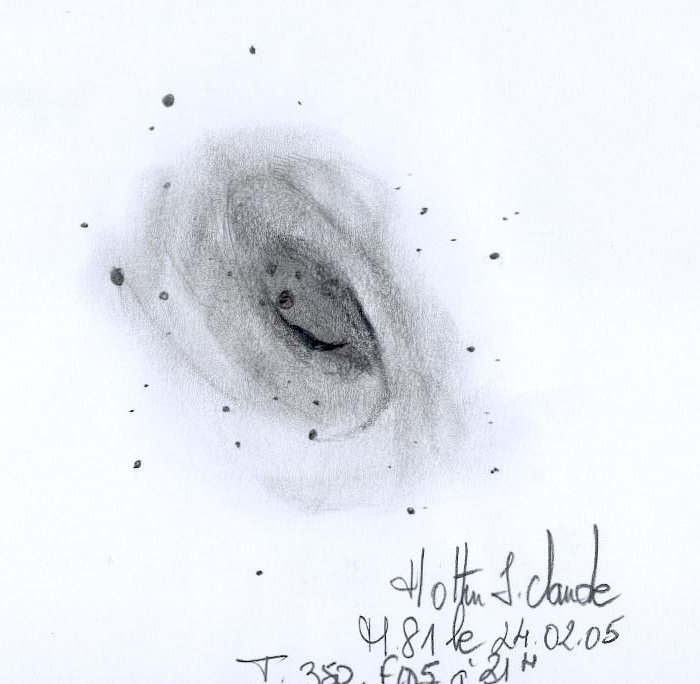 Hottin J. Claude
M.81 le 24.02.05
T. 350. F/D5 à 21H